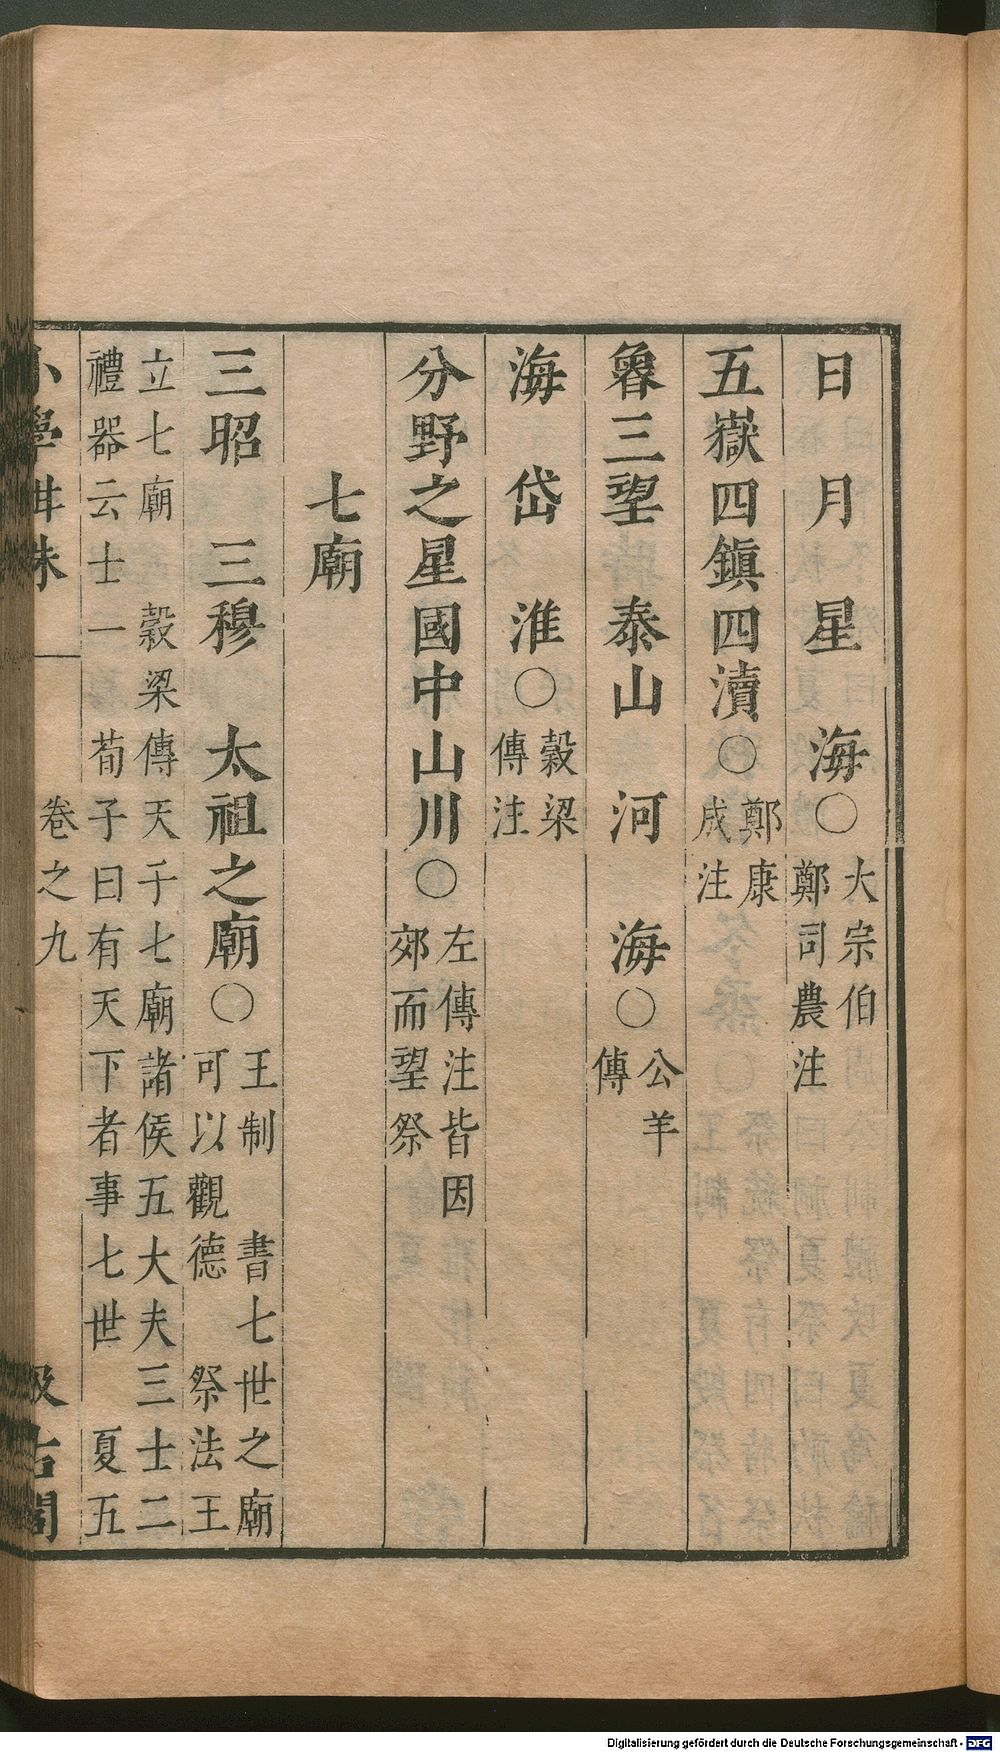 日　月　星　海○大宗伯鄭司農注
五嶽四鎮四瀆○鄭康成注
魯三望　泰山　河　海○公羊傳
海　岱　淮○穀梁傳注
分野之星國中山川○左傳注皆因郊而望祭
七廟
三昭　三穆　太祖之廟○王制　書七世之廟可以觀德　祭法王
立七廟　穀梁傳天子七廟諸侯五大夫三士二
禮器云士一　荀子曰有天下者事七世　夏五
小學紺珠　卷之九　汲古閣
Digitalisierung gefördert durch die Deutsche Forschungsgemeinschaft - DFG